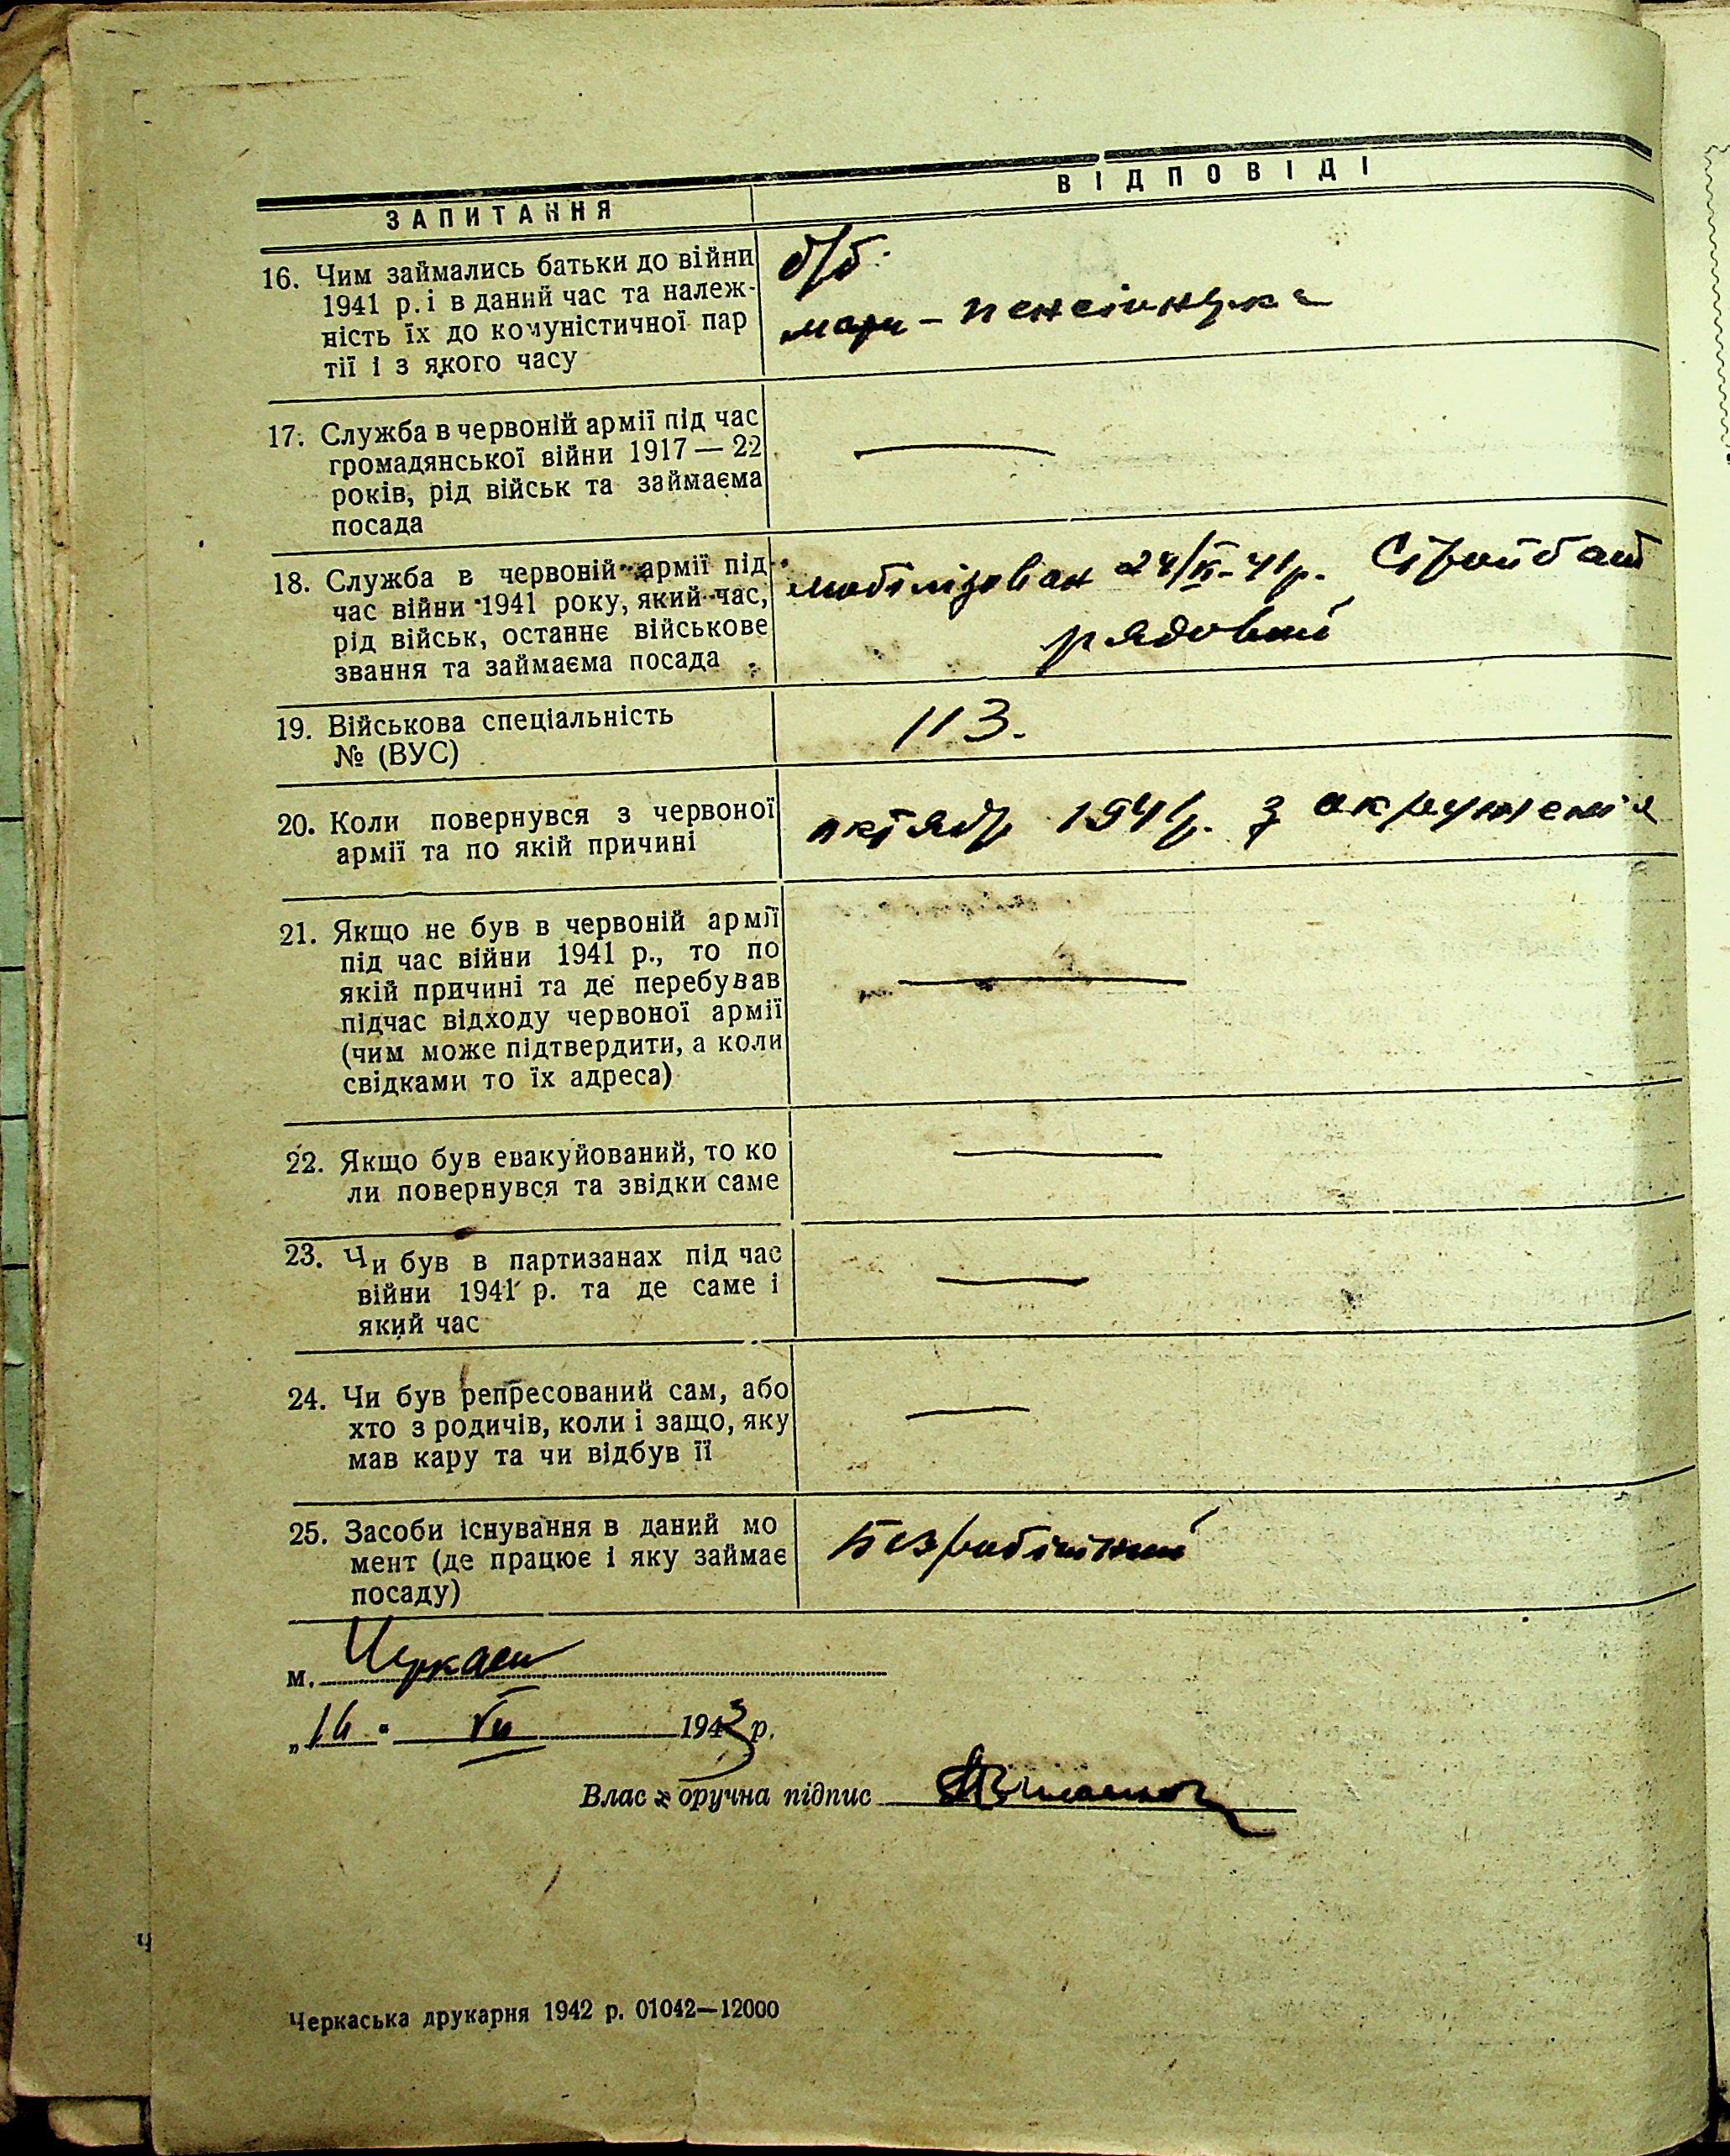 ЗАПИТАННЯ
ВІДПОВІДІ
16. Чим займались батьки до війни
1941 р. і в даний час та належ-
ність їх до комуністичної пар
тії і з якого часу
б/б.
мати – пенсіонерка
17. Служба в червоній армії під час
громадянської війни 1917 — 22
років, рід військ та займаєма
посада
18. Служба в червоній армії під
час війни 1941 року, який час,
рід військ, останнє військове
звання та займаєма посада
мобілізован 41р. Стройбат
рядовий
19. Військова спеціальність
№ (ВУС)
113.
20. Коли повернувся з червоної
армії та по якій причині
октябр 1941р. з окруженія
21. Якщо не був в червоній армії
під час війни 1941 р., то по
якій причині та де перебував
підчас відходу червоної армії
(чим може підтвердити, а коли
свідками то їх адреса)
22. Якщо був евакуйований, то ко
ли повернувся та звідки саме
23. Чи був в партизанах під час
війни 1941 р. та де саме і
який час
24. Чи був репресований сам, або
хто з родичів, коли і защо, яку
мав кару та чи відбув її
25. Засоби існування в даний мо
мент (де працює і яку займає
посаду)
Безробітний
м. Черкаси
„16" VII 1943 р.
Власноручна підпис
Черкаська друкарня 1942 р. 01042—12000